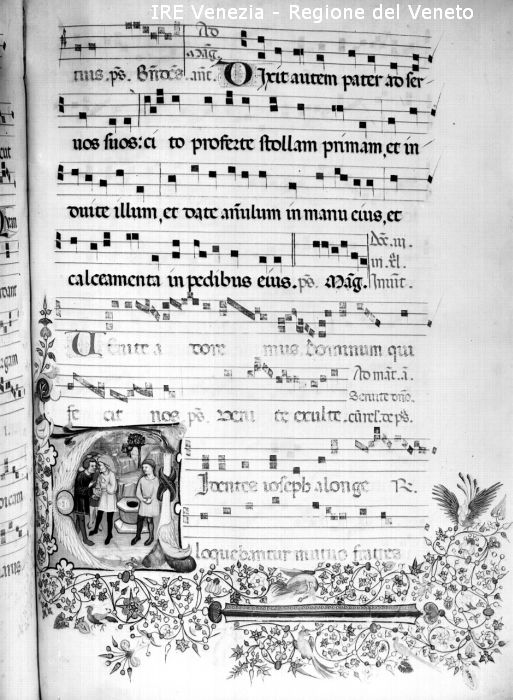 IRE Venezia - Regione del Veneto
Ad
Mag̃.
tuis. p̃s. añt. Dixit autem pater ad ser
uos suos: ci to proferte stollam primam, et in
duite illum, et date añulum in manu eius, et
calceamenta in pedibus eius. p̃s. Mag̃.
Uenite a dore mus. dominum qui
fe cit nos p̃s. Ueni te exulte.
Uidentes ioseph alonge R.
loquebantur mutuo fratres